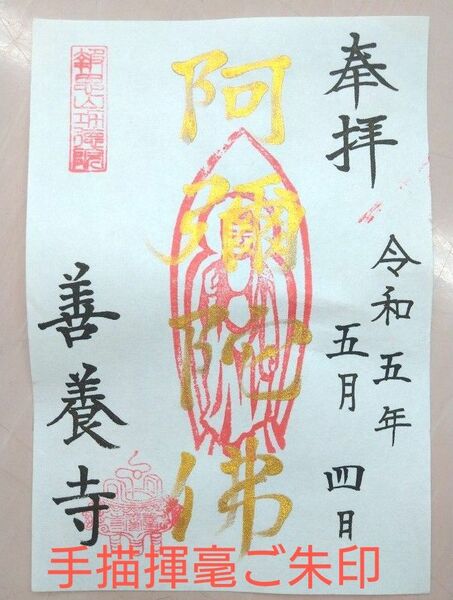 奉拝
令和五年
五月 四日
阿彌陀佛
善養寺
手描揮毫ご朱印